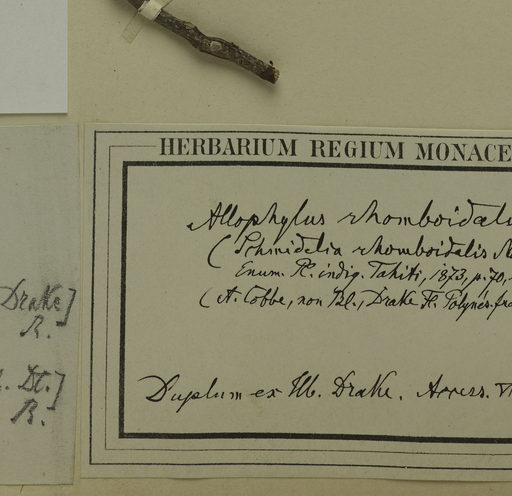 HERBARIUM REGIUM MONACE
Allophylus rhomboidali
(Schmidelia rhomboidalis
Enum. Pl. indig. Tahiti, 1873, p. 70,
(A. Cobbe, non Bl., Drake Fl. Polynés. fra
Duplum ex Hb. Drake. Access.
Drake]
R.
Dt.]
R.